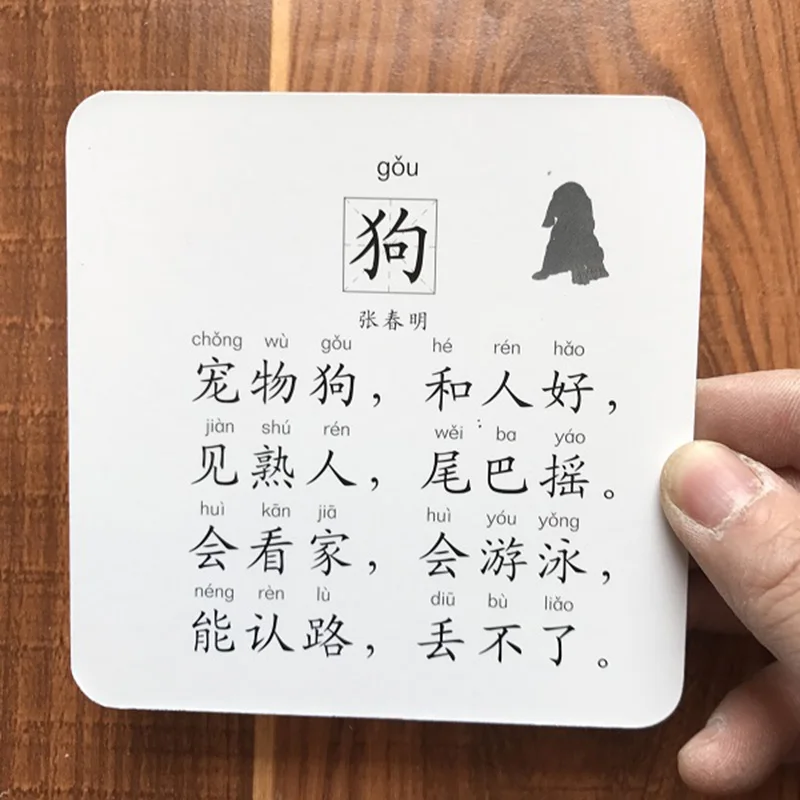 gǒu
狗
张春明
chǒng wù gǒu hé rén hǎo
宠物狗，和人好，
jiàn shú rén wěi ba yáo
见熟人，尾巴摇。
huì kān jiā huì yóu yǒng
会看家，会游泳，
néng rèn lù diū bù liǎo
能认路，丢不了。